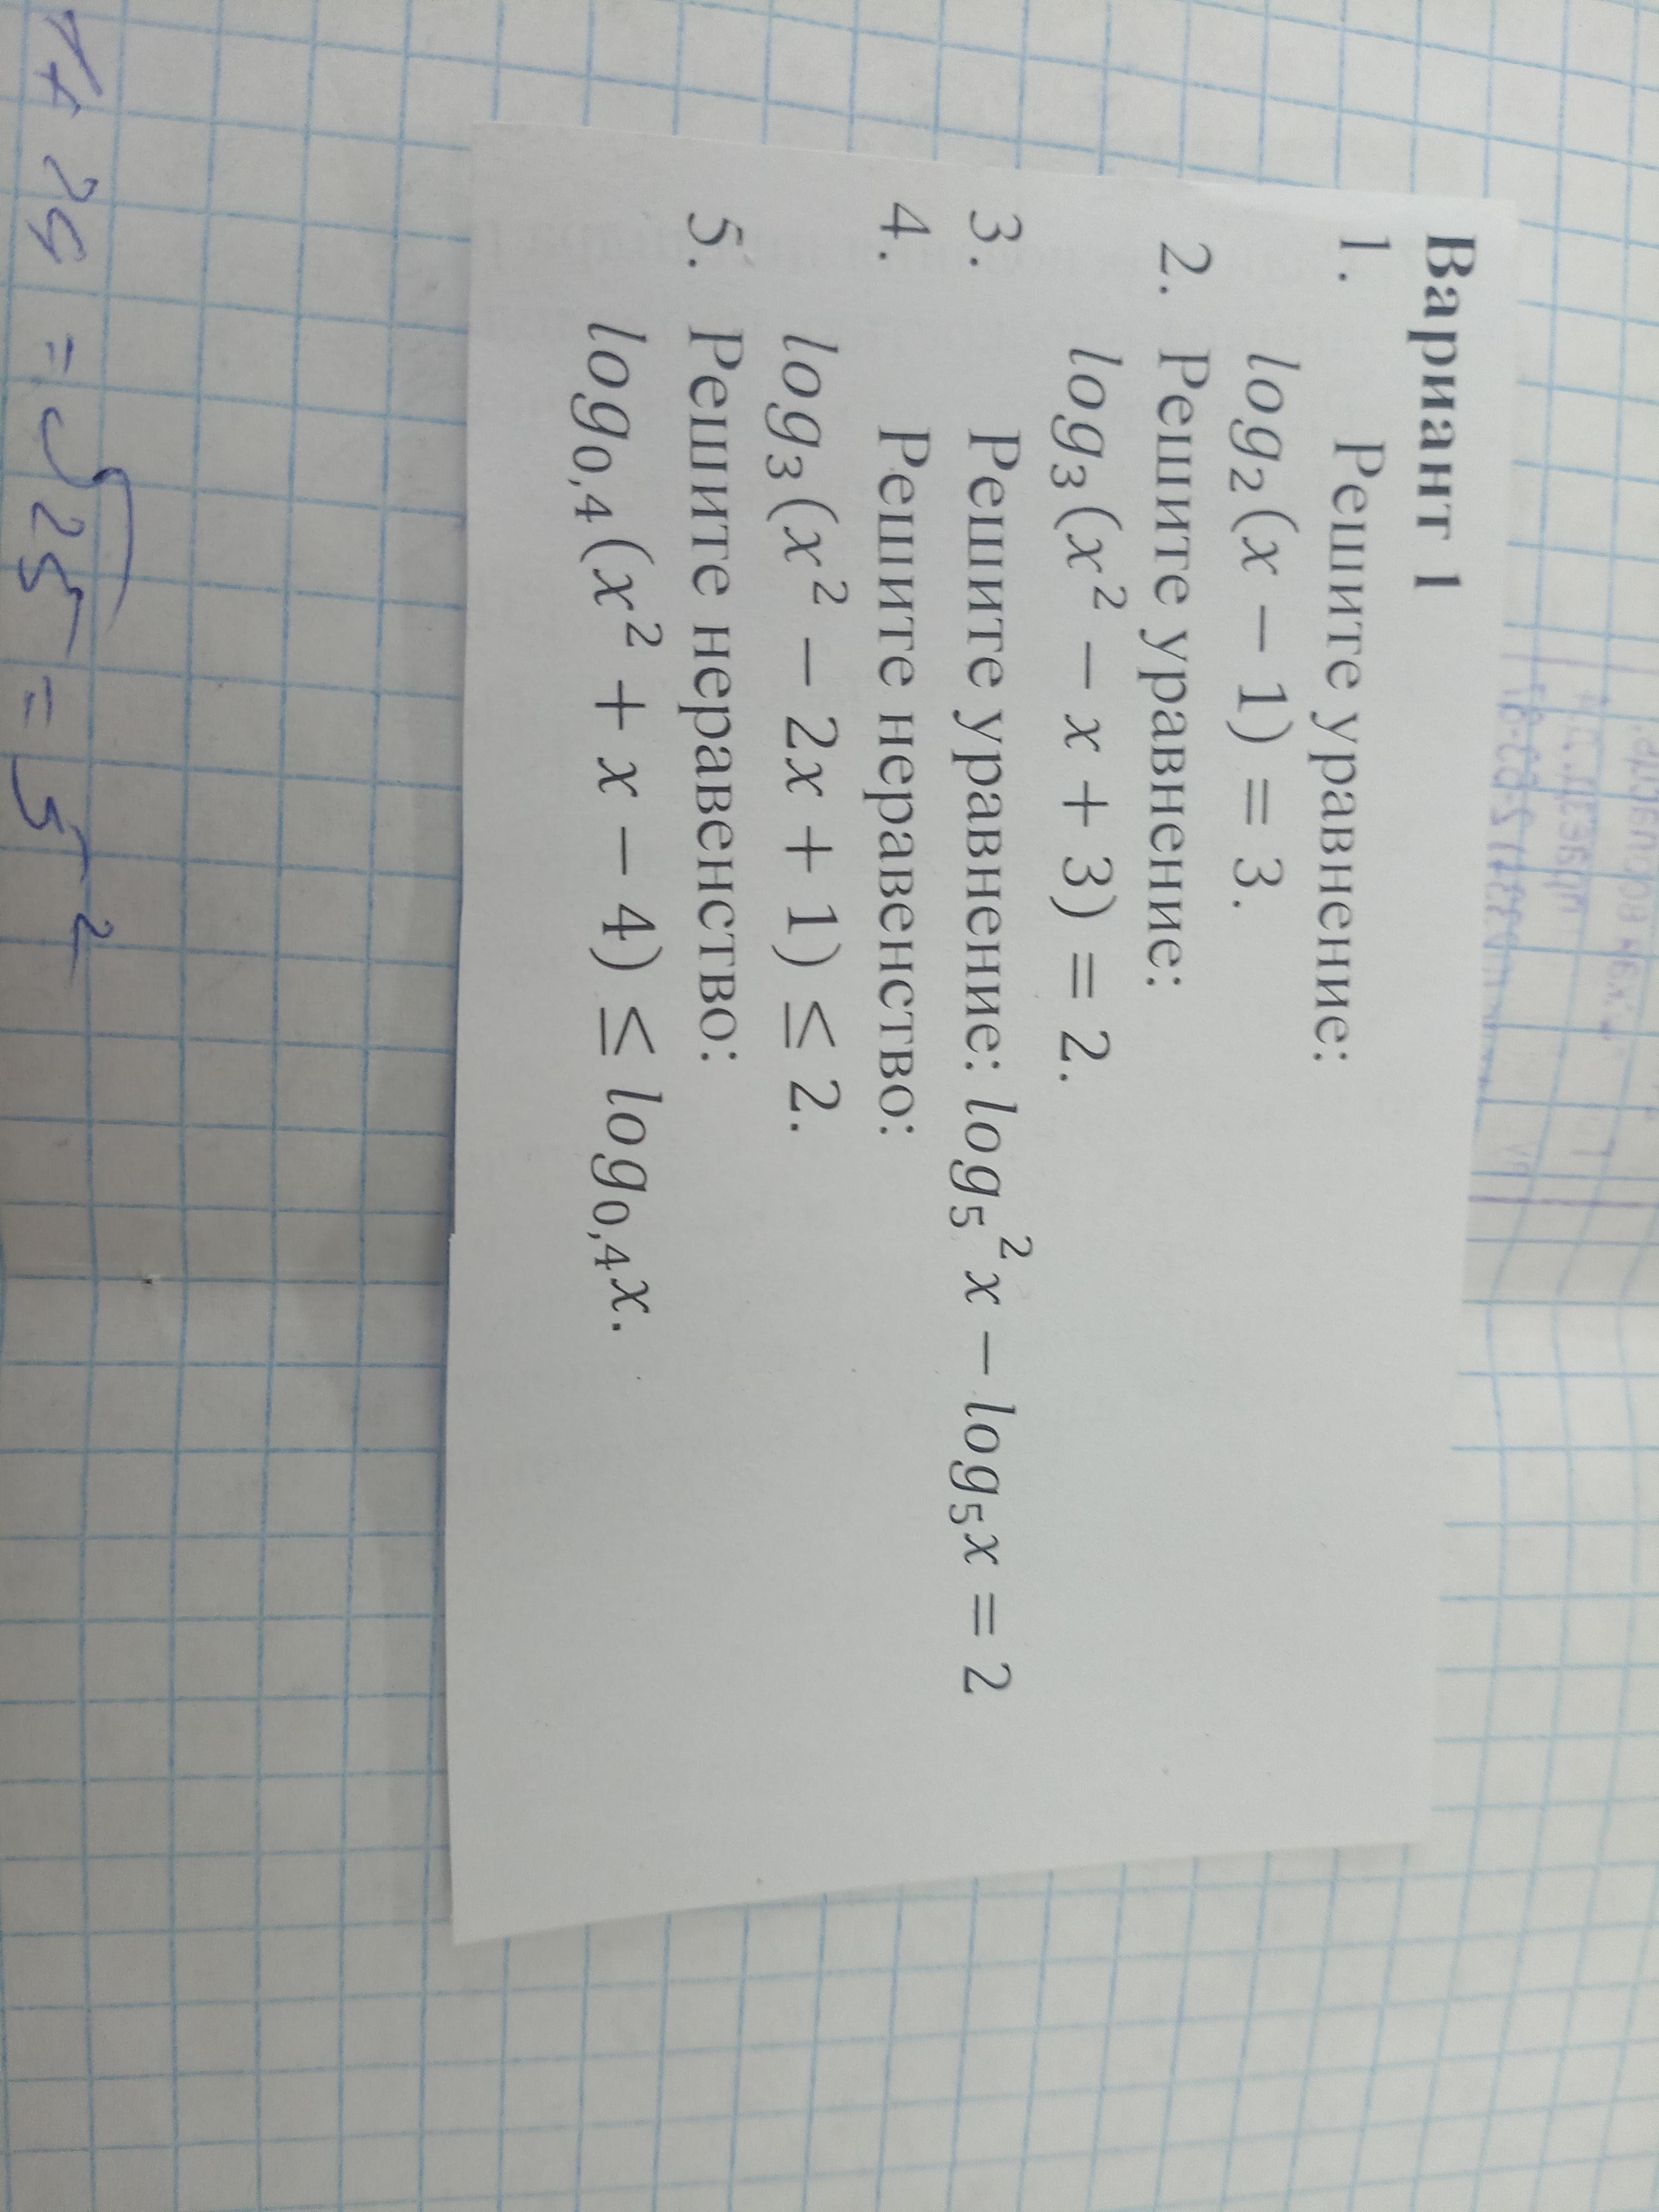 Вариант 1
1. Решите уравнение:
log₂(x − 1) = 3.
2. Решите уравнение:
log₃(x² − x + 3) = 2.
3. Решите уравнение: log₅²x − log₅x = 2
4. Решите неравенство:
log₃(x² − 2x + 1) ≤ 2.
5. Решите неравенство:
log₀,₄(x² + x − 4) ≤ log₀,₄x.
= √25 = 5²